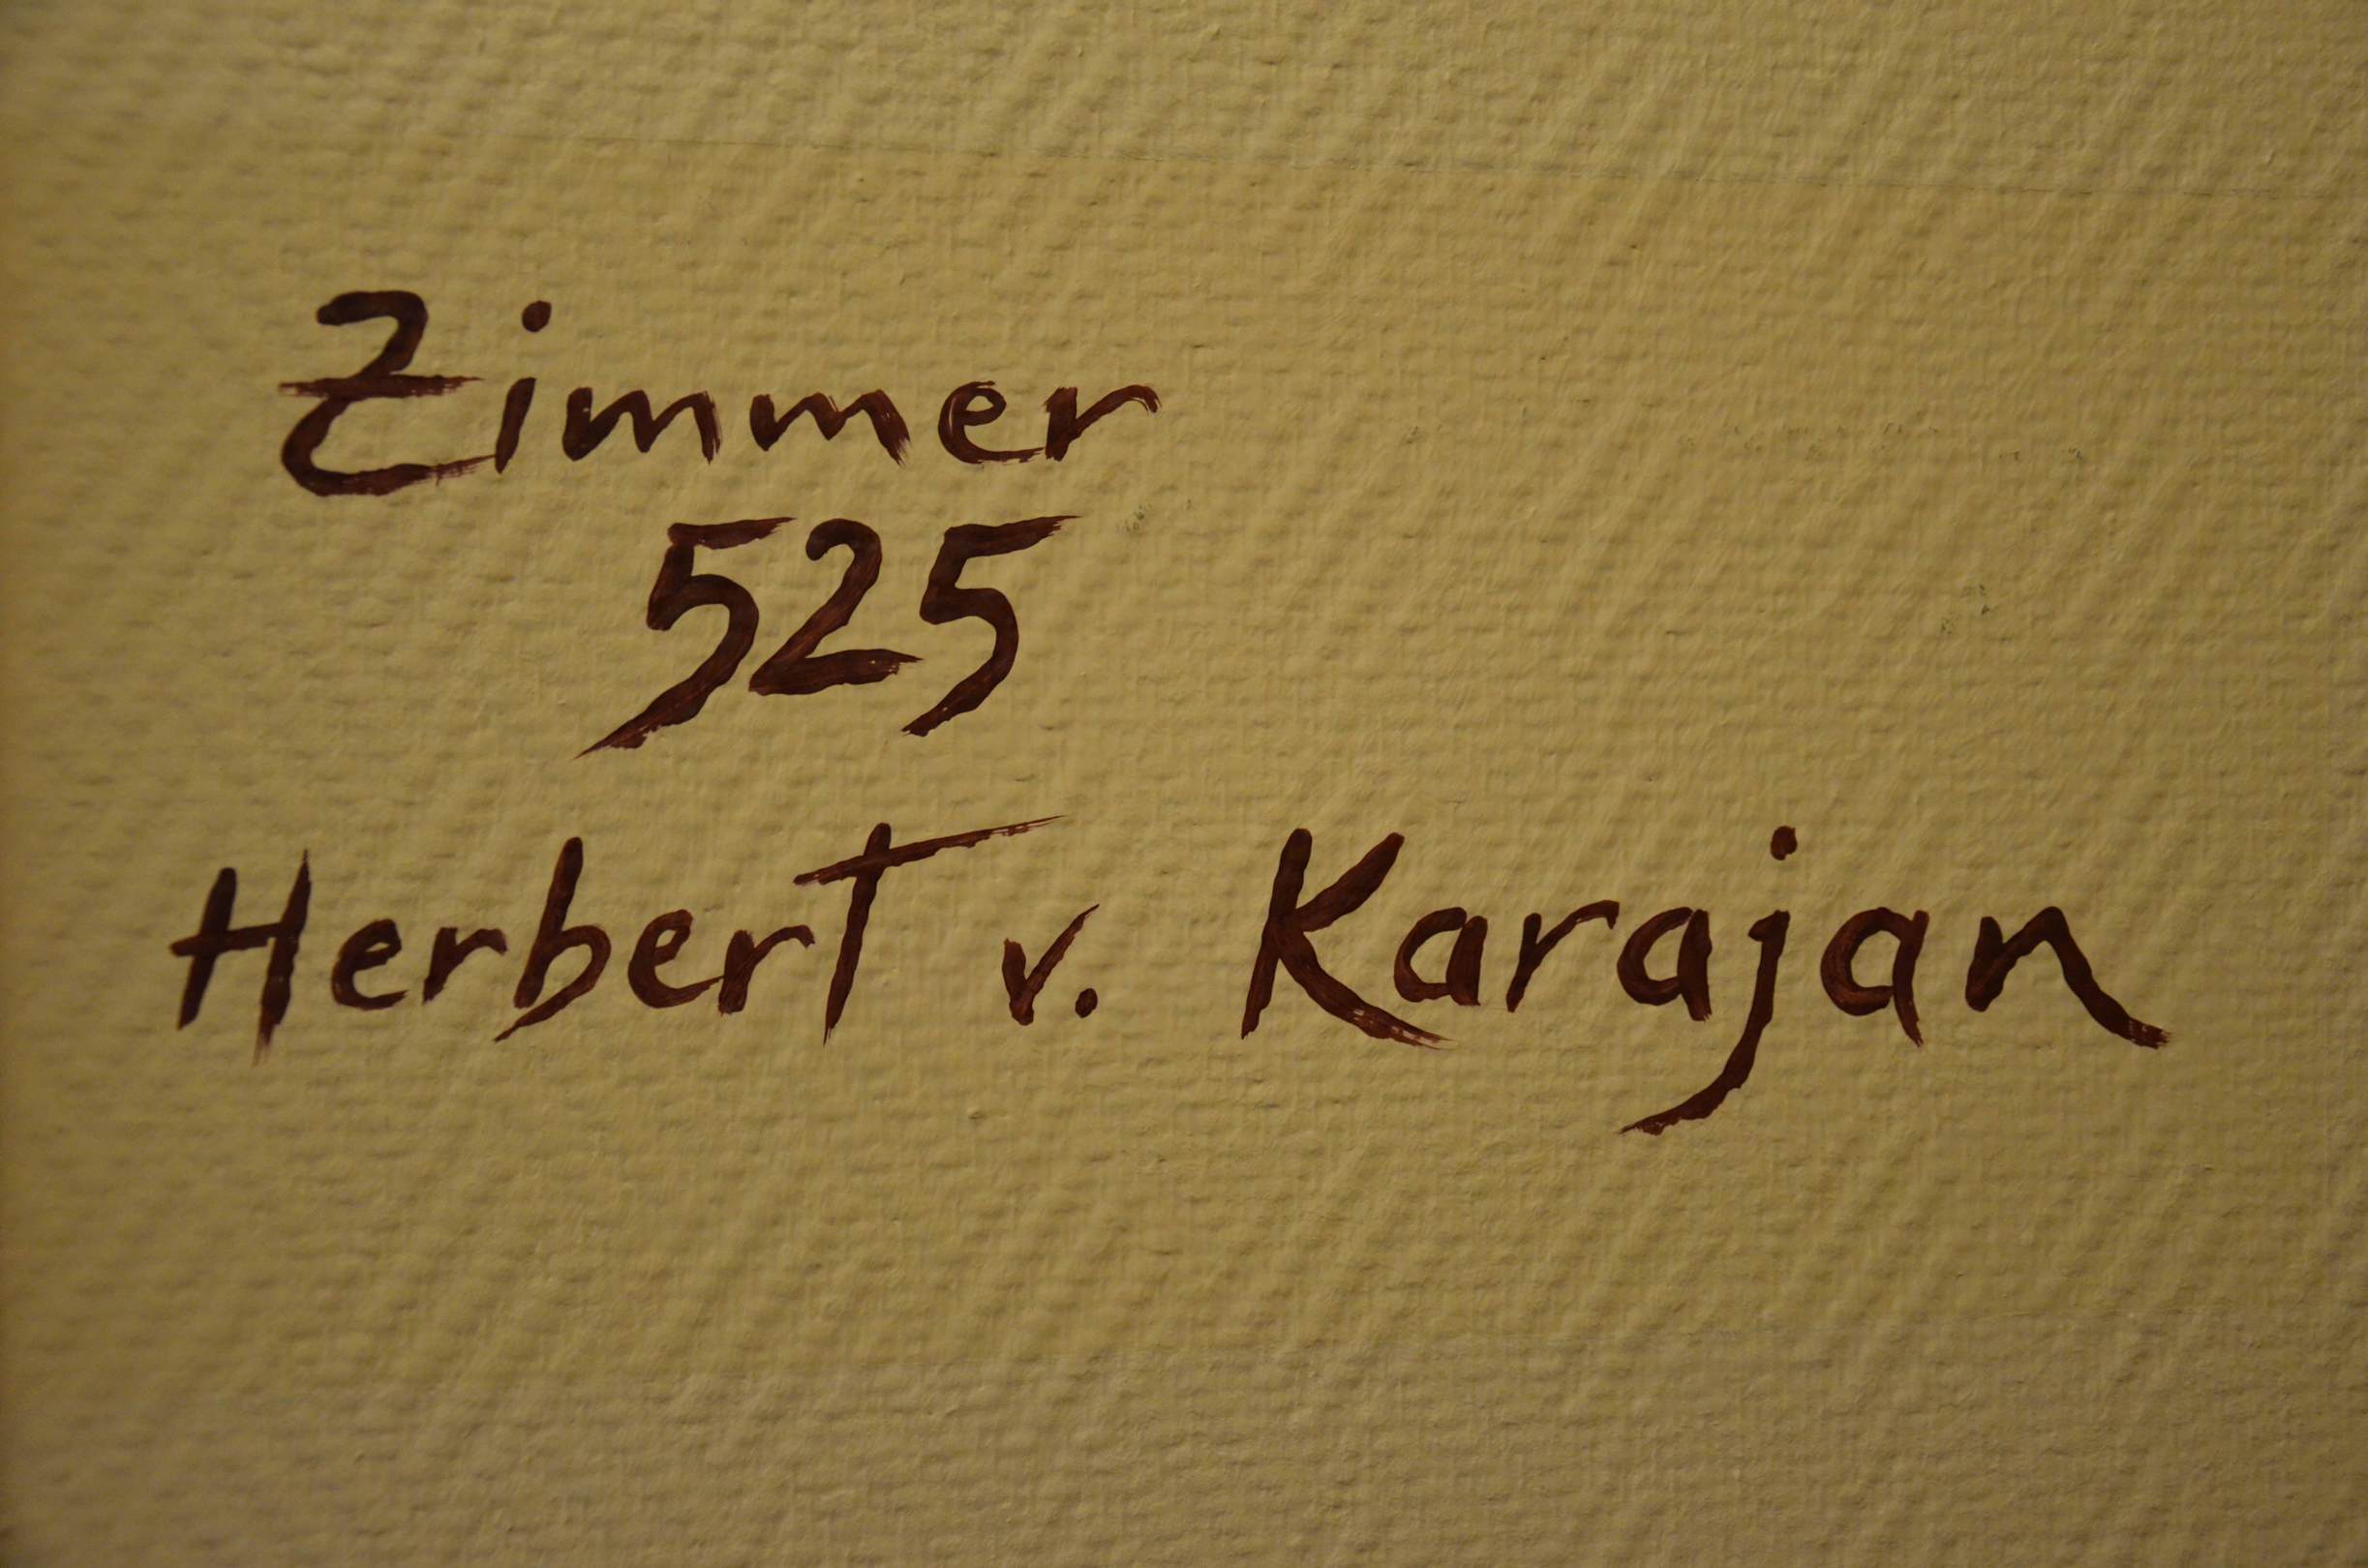 Zimmer
525
Herbert v. Karajan